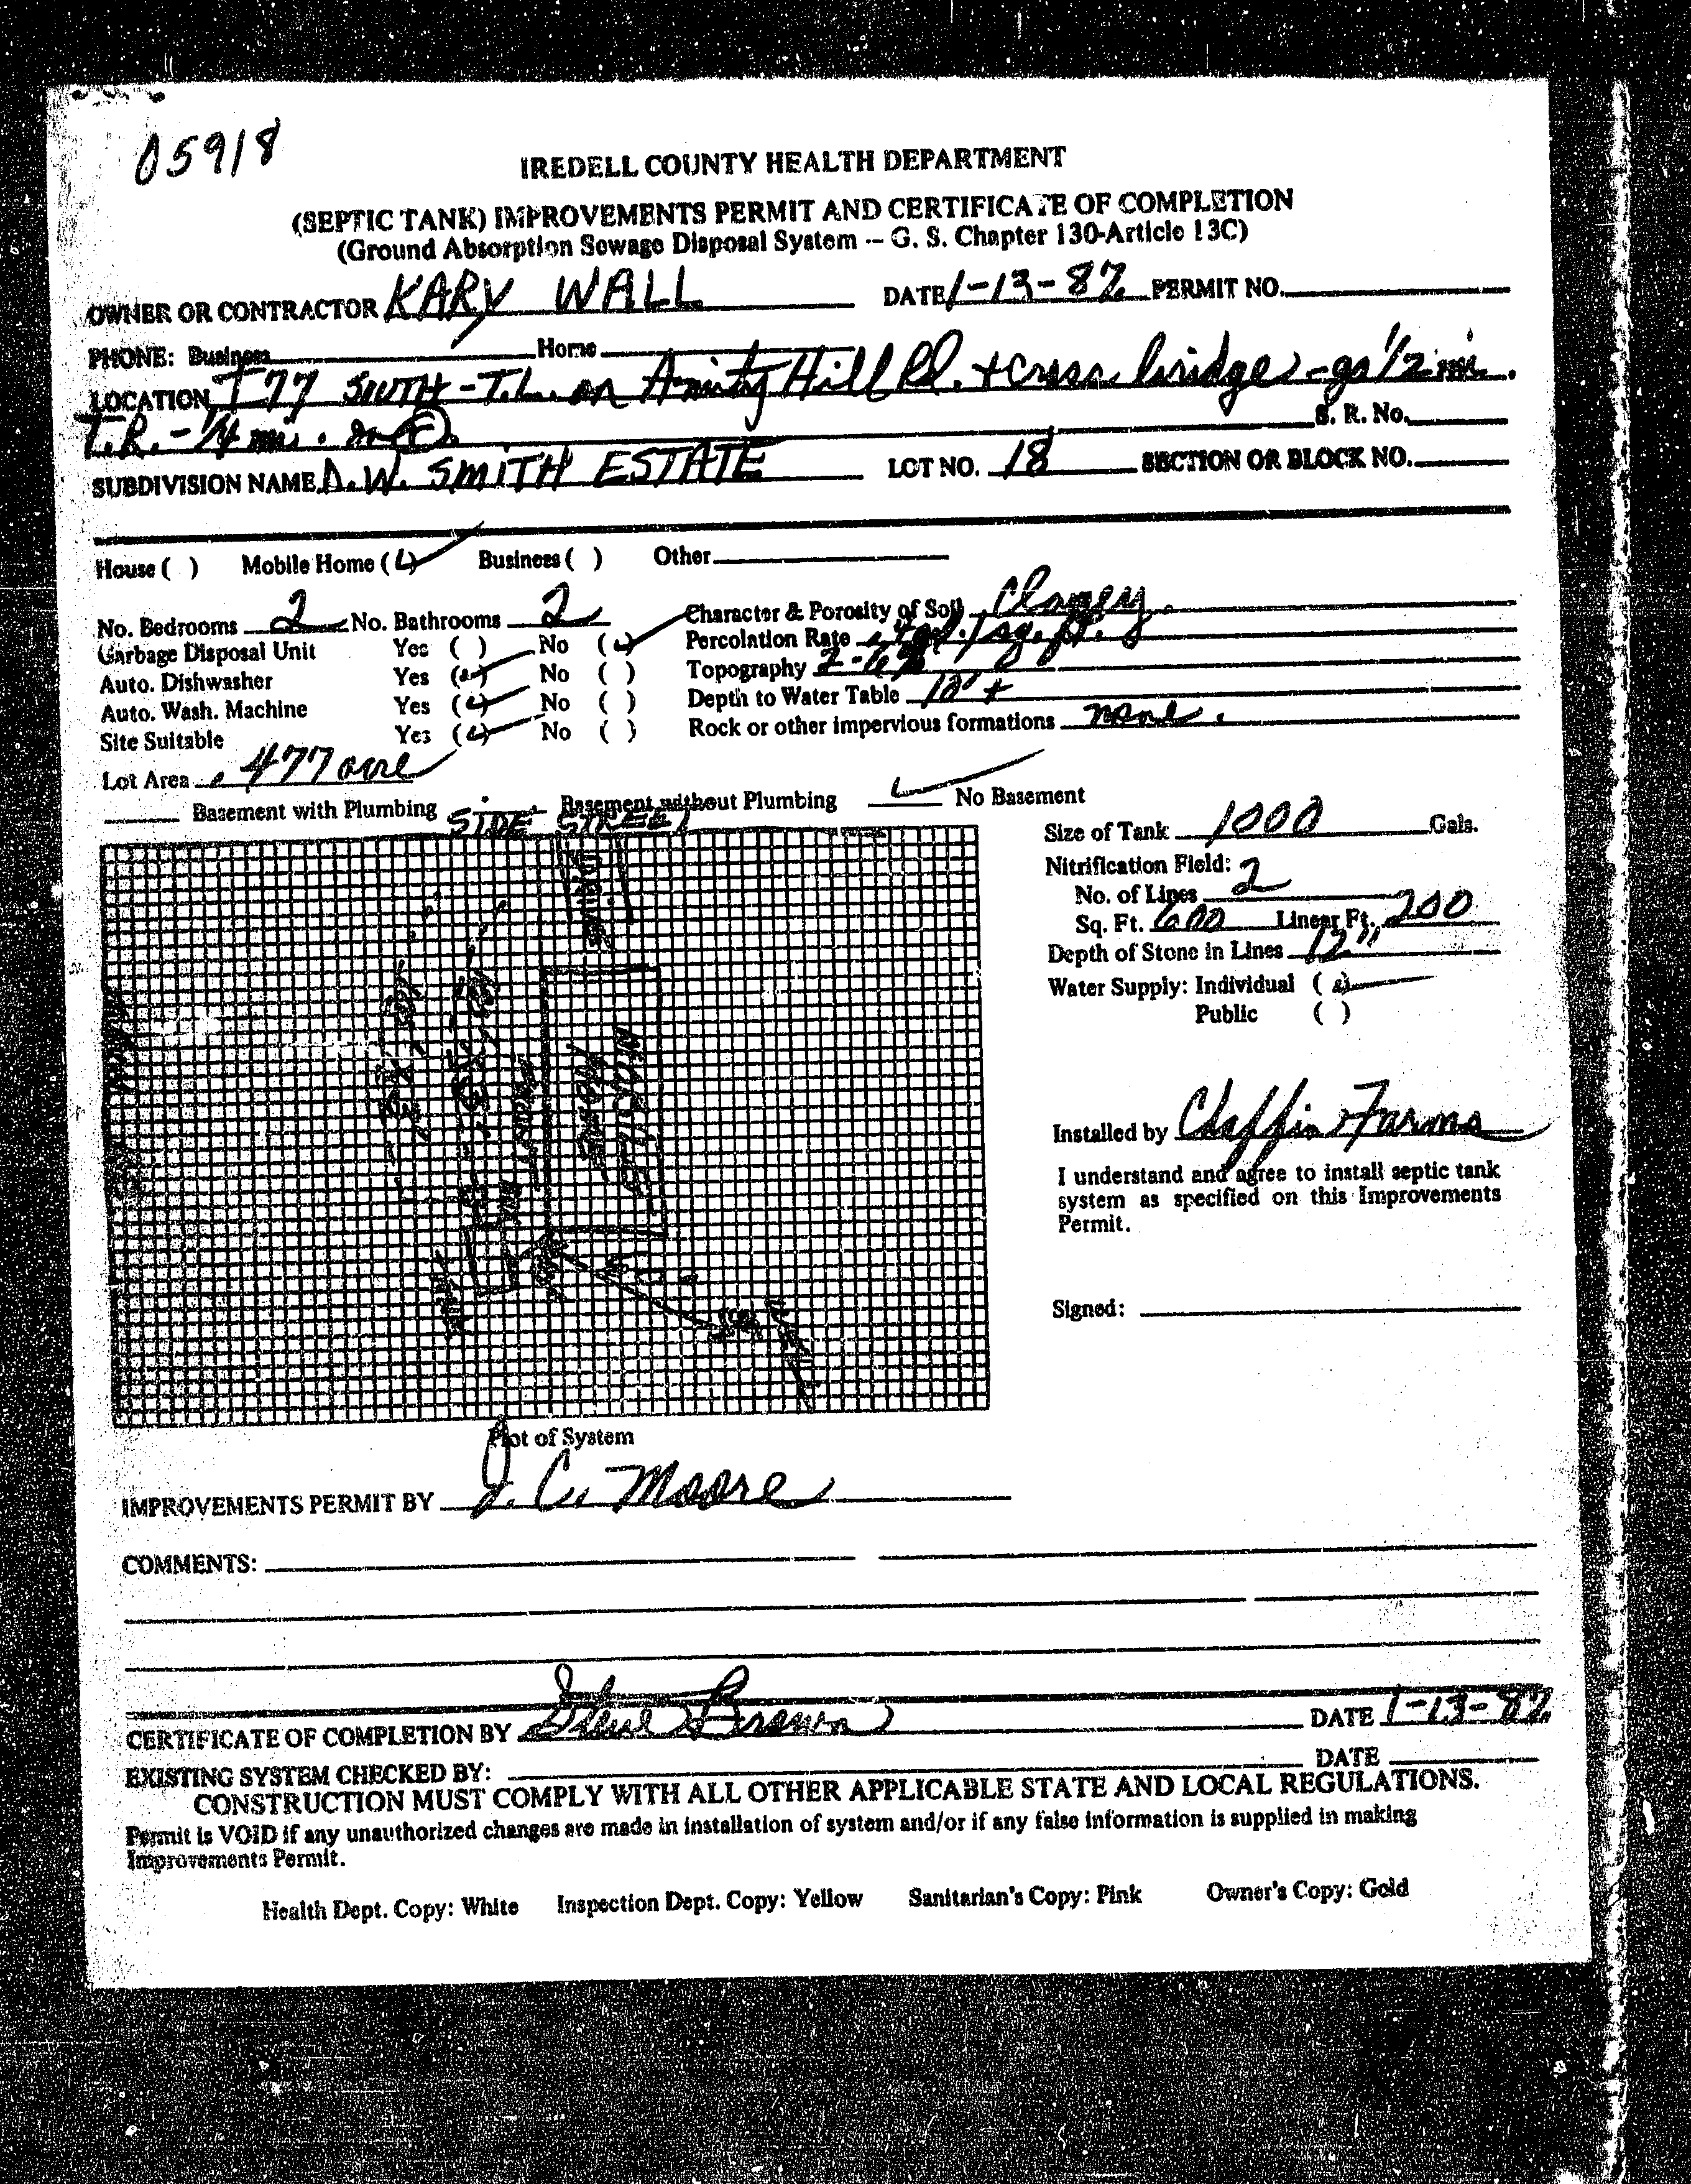 05918
IREDELL COUNTY HEALTH DEPARTMENT
(SEPTIC TANK) IMPROVEMENTS PERMIT AND CERTIFICATE OF COMPLETION
(Ground Absorption Sewage Disposal System -- G. S. Chapter 130-Article 13C)
OWNER OR CONTRACTOR KARY WALL DATE 1-13-87 PERMIT NO.
PHONE: Business Home
LOCATION I 77 SOUTH - T.L. on Amity Hill Rd. + cross bridge - go 1/2 mi.
T.R. - 1/4 mi. on S. R. No.
SUBDIVISION NAME D.W. SMITH ESTATE LOT NO. 18 SECTION OR BLOCK NO.
House ( ) Mobile Home ( ) Business ( ) Other
No. Bedrooms 2 No. Bathrooms 2 Character & Porosity of Soil Clayey.
Garbage Disposal Unit Yes ( ) No ( ) Percolation Rate gal./sq. ft.
Auto. Dishwasher Yes ( ) No ( ) Topography 2-6%
Auto. Wash. Machine Yes ( ) No ( ) Depth to Water Table 10' +
Site Suitable Yes ( ) No ( ) Rock or other impervious formations none.
Lot Area .477 acre
Basement with Plumbing Basement without Plumbing No Basement
SIDE STREET
Size of Tank 1000 Gals.
Nitrification Field:
No. of Lines 2
Sq. Ft. 600 Linear Ft. 200
Depth of Stone in Lines 12"
Water Supply: Individual ( )
Public ( )
DRIVE
MOBILE
HOME
Installed by Claffin Farms
I understand and agree to install septic tank
system as specified on this Improvements
Permit.
Signed:
Plot of System
IMPROVEMENTS PERMIT BY J. C. Moore
COMMENTS:
CERTIFICATE OF COMPLETION BY Steve Brown DATE 1-13-87
EXISTING SYSTEM CHECKED BY: DATE
CONSTRUCTION MUST COMPLY WITH ALL OTHER APPLICABLE STATE AND LOCAL REGULATIONS.
Permit is VOID if any unauthorized changes are made in installation of system and/or if any false information is supplied in making
Improvements Permit.
Health Dept. Copy: White Inspection Dept. Copy: Yellow Sanitarian's Copy: Pink Owner's Copy: Gold